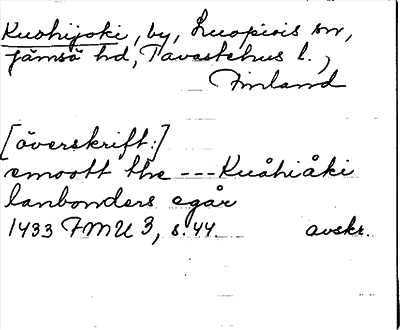 Kuohijoki, by, Luopiois sn,
Jämsä hd, Tavastehus l.,
Finland
[överskrift:]
emoott the --- Kuåhiåki
lanbonders egår
1433 FMU 3, s. 44. avskr.